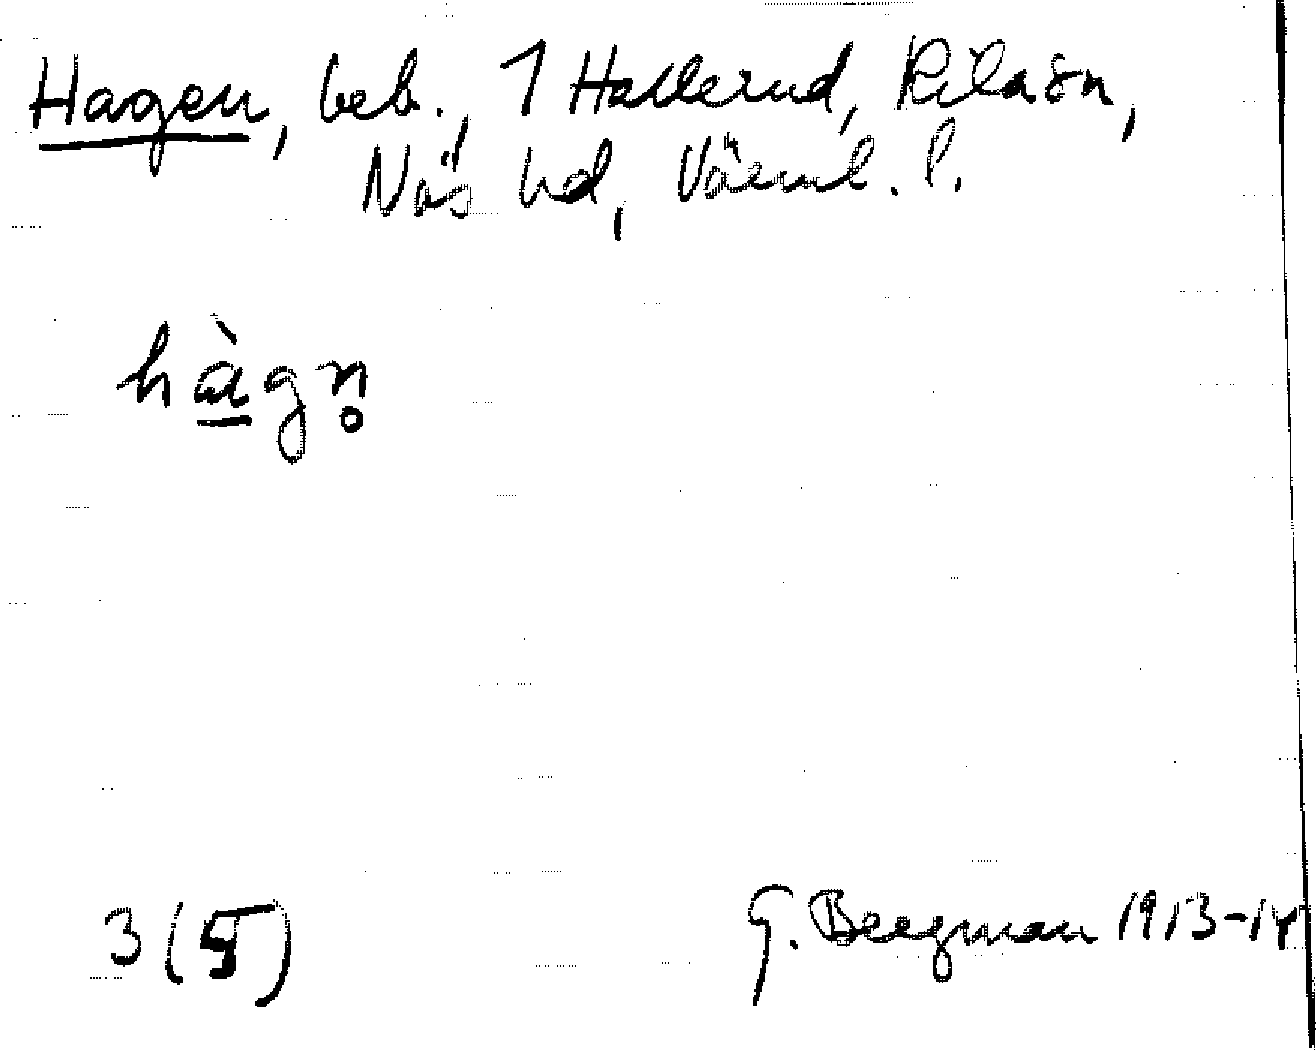 Hagen, beb., 1 Hallerud, Ölserud,
Näs hd, Värml. l.
hàgn̥
3 (5)
G. Bergman 1913-14